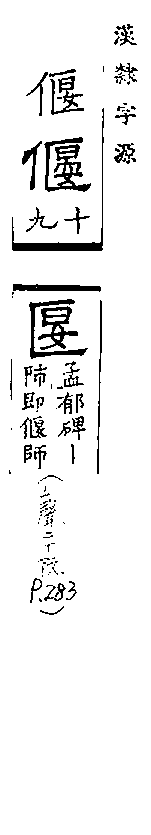 漢隸字源
偃
偃
十九
匽
孟郁碑｜
陏即偃師
(上聲二十阮、
P.283)